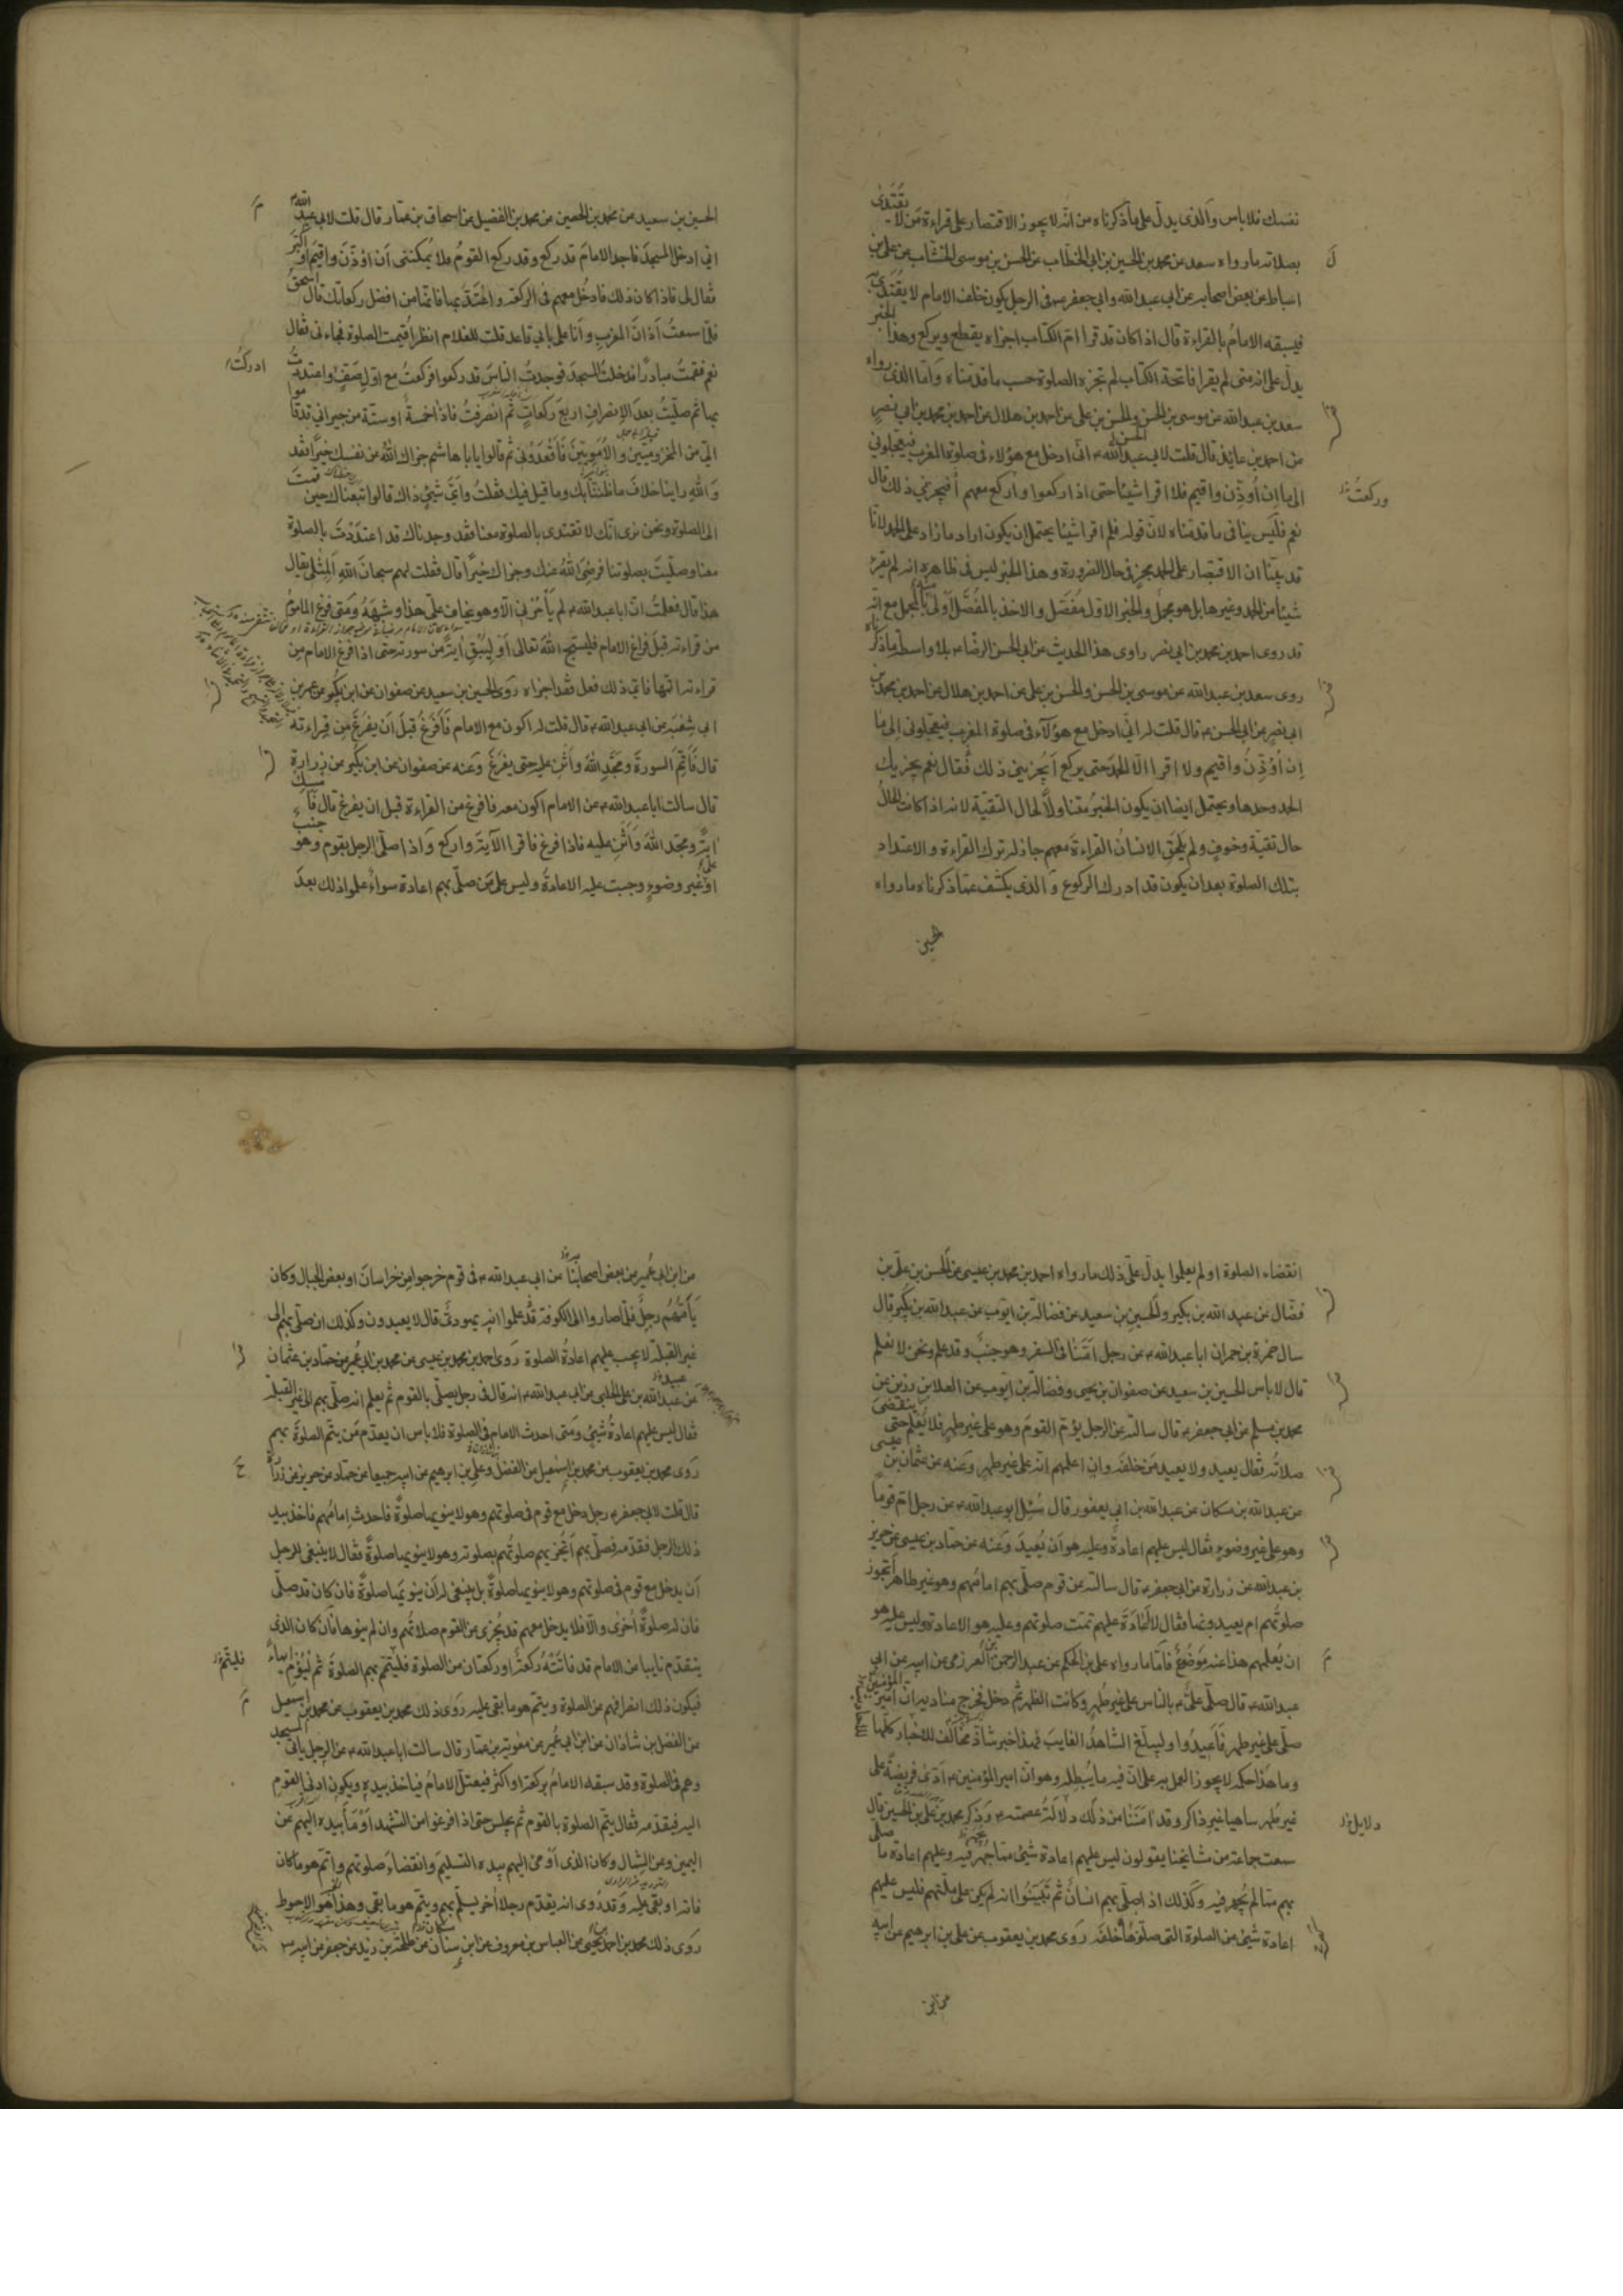 نفسك فلا باس والذى يدل على ما ذكرناه من انه لا يجوز الاقتصار على قراءة من لا يقتدى
بصلاته ما رواه سعد عن محمد بن الحسين بن ابى الخطاب عن الحسن بن موسى الخشاب عن على بن
اسباط عن بعض اصحابه عن ابى عبد الله وابى جعفر فى الرجل يكون خلف الامام لا يقتدى به
فيسبقه الامام بالقراءة قال اذا كان قد قرا ام الكتاب اجزاه يقطع ويركع وهذا الخبر
يدل على انه متى لم يقرا فاتحة الكتاب لم تجزه الصلوة حسب ما قدمناه واما الذى رواه
سعد بن عبد الله عن موسى بن الحسن والحسن بن على عن احمد بن هلال عن احمد بن محمد بن ابى نصر
عن احمد بن عايذ قال قلت لابى عبد الله انى ادخل مع هؤلاء فى صلوة المغرب فيعجلونى
الى ما ان اُوذّن واقيم فلا اقرا شيئا حتى اذا ركعوا واركع معهم أفيجزينى ذلك قال
وركعتُ
نعم فليس ينافى ما قدمناه لان قوله فلم اقرا شيئا يحتمل ان يكون اراد ما زاد على الحمد لانا
قد بينا ان الاقتصار على الحمد يجزى فى حال الضرورة وهذا الخبر ليس فى ظاهره انه لم يقرء
شيئا من الحمد وغيرها بل هو مجمل والخبر الاول مفصّل والاخذ بالمفصّل اولى منه بالمجمل مع انه
قد روى احمد بن محمد بن ابى نصر راوى هذا الحديث عن ابى الحسن الرضا بلا واسطة ما ذكرناه
روى سعد بن عبد الله عن موسى بن الحسن والحسن بن على عن احمد بن هلال عن احمد بن محمد بن
ابى نصر عن ابى الحسن قال قلت له انى ادخل مع هؤلاء فى صلوة المغرب فيعجلونى الى ما
ان اُؤذّن واقيم ولا اقرا الا الحمد حتى يركع أيجزينى ذلك فقال نعم يجزيك
الحمد وحدها ويحتمل ايضا ان يكون الخبر متناولا لحال التقية لانه اذا كانت الحال
حال تقية وخوف ولم يلحق الانسان القراءة معهم جاز له ترك القراءة والاعتداد
بتلك الصلوة بعد ان يكون قد ادرك الركوع والذى يكشف عما ذكرناه ما رواه
الحسين
الحسين بن سعيد عن محمد بن الحصين عن محمد بن الفضيل عن اسحاق بن عمار قال قلت لابى عبد الله
انى ادخل المسجد فاجد الامام قد ركع وقد ركع القوم فلا يمكننى أن اؤذّن واقيم او اكبّر
فقال لى فاذا كان ذلك فادخل معهم فى الركعة واعتدّ بها فانها من افضل ركعاتك قال اسحق
فلما سمعتُ أذان المغرب وأنا على بابى قاعد قلت للغلام انظر أقيمت الصلوة فجاءنى فقال
نعم فقمتُ مبادرًا فدخلت المسجد فوجدت الناس قد ركعوا فركعت مع اول صفّ واعتددت
ادركتُ
بها ثم صليت بعد الانصراف اربع ركعات ثم انصرفت فاذا خمسة او ستة من جيرانى قد قاموا
الىّ من المخزوميين والامويين فأقعدونى ثم قالوا يا با هاشم جزاك الله عن نفسك خيرًا فقد
والله راينا خلاف ما ظننّا بك وما قيل فيك فقلت واىّ شئ ذاك قالوا تبعناك حين قمت
الى الصلوة ونحن نرى انك لا تقتدى بالصلوة معنا فقد وجدناك قد اعتددت بالصلوة
معنا وصليت بصلوتنا فرضى الله عنك وجزاك خيرًا قال فقلت لهم سبحان الله ألمثلى يقال
هذا قال فعلمت ان ابا عبد الله لم يأمرنى الا وهو يخاف علىّ هذا وشبهه ومتى فرغ الماموم
من قراءته قبل فراغ الامام فليسبح الله تعالى او ليبق اية من سورته حتى اذا فرغ الامام من
قراءته اتمها فانى ذلك فعل فقد اجزاه روى الحسين بن سعيد عن صفوان عن ابن بكير عن عمر بن
ابى شعبة عن ابى عبد الله قال قلت له اكون مع الامام فأفرغ قبل أن يفرغ من قراءته
قال فأتمّ السورة ومجّد الله وأثن عليه حتى يفرغ وعنه عن صفوان عن ابن بكير عن زرارة
قال سالت ابا عبد الله عن الامام اكون معه فافرغ من القراءة قبل ان يفرغ قال فأمسك
اية ومجّد الله وأثن عليه فاذا فرغ فاقرا الاية واركع واذا صلى الرجل بقوم وهو جنب
او على غير وضوء وجبت عليه الاعادة وليس على من صلى بهم اعادة سواء علموا ذلك بعد
انقضاء الصلوة او لم يعلموا يدل على ذلك ما رواه احمد بن محمد بن عيسى عن الحسن بن على بن
فضال عن عبد الله بن بكير والحسين بن سعيد عن فضالة بن ايوب عن عبد الله بن بكير قال
سال حمزة بن حمران ابا عبد الله عن رجل امّنا فى السفر وهو جنب وقد علم ونحن لا نعلم
قال لا باس الحسين بن سعيد عن صفوان بن يحيى وفضالة بن ايوب عن العلا بن رزين عن
محمد بن مسلم عن ابى جعفر قال سالته عن الرجل يؤم القوم وهو على غير طهر فلا يعلم حتى ينقضى
صلاته فقال يعيد ولا يعيد من خلفه وان اعلمهم انه على غير طهر وعنه عن عثمان بن عيسى
عن عبد الله بن مسكان عن عبد الله بن ابى يعفور قال سُئل ابو عبد الله عن رجل امّ قومًا
وهو على غير وضوء فقال ليس عليهم اعادة وعليه هو أن يُعيد وعنه عن حماد بن عيسى عن حريز
بن عبد الله عن زرارة عن ابى جعفر قال سالته عن قوم صلى بهم امامهم وهو غير طاهر أتجوز
صلوتهم ام يعيدونها فقال لا اعادة عليهم تمت صلوتهم وعليه هو الاعادة وليس عليه هو
ان يُعلمهم هذا عنه موضوع فأما ما رواه على بن الحكم عن عبد الرحمن العرزمى عن ابيه عن ابى
عبد الله قال صلى علىّ بالناس على غير طهر وكانت الظهر ثم دخل فخرج مناديه ان امير المؤمنين
صلى على غير طهر فأعيدوا وليبلّغ الشاهد الغايب فهذا خبر شاذ مخالف للاخبار كلها
وما هذا حكمه لا يجوز العمل به على ان فيه ما يُبطله وهو ان امير المؤمنين أدى فريضة على
غير طهر ساهيا غير ذاكر وقد امننا من ذلك دلالة عصمته وذكر محمد بن على بن الحسين قال
دلايل
سمعت جماعة من مشايخنا يقولون ليس عليهم اعادة شئ مما جهر فيه وعليهم اعادة ما صلى
بهم مما لم يجهر فيه وكذلك اذا صلى بهم انسان ثم تبينوا انه لم يكن على ملتهم فليس عليهم
اعادة شئ من الصلوة التى صلوها خلفه روى محمد بن يعقوب عن على بن ابرهيم عن ابيه
عن ابن
عن ابن ابى عمير عن بعض اصحابنا عن ابى عبد الله فى قوم خرجوا من خراسان او بعض الجبال وكان
يأمّهم رجل فلما صاروا الى الكوفة علموا انه يهودى قال لا يعيدون وكذلك ان صلى بهم الى
غير القبلة لا يجب عليهم اعادة الصلوة روى احمد بن محمد بن عيسى عن محمد بن ابى عمير عن حماد بن عثمان
عن عبد الله بن على الحلبى عن ابى عبد الله انه قال فى رجل يصلى بالقوم ثم يعلم انه صلى بهم الى غير القبلة
فقال ليس عليهم اعادة شئ ومتى احدث الامام فى الصلوة فلا باس ان يقدّم من يتم الصلوة بهم
روى محمد بن يعقوب عن محمد بن إسمعيل عن الفضل وعلى بن ابرهيم عن ابيه جميعا عن حماد عن حريز عن زرارة
قال قلت لابى جعفر رجل دخل مع قوم فى صلوتهم وهو لا ينويها صلوة فاحدث امامهم فاخذ بيد
ذلك الرجل فقدمه فصلى بهم أتجزيهم صلوتهم بصلوته وهو لا ينويها صلوة فقال لا ينبغى للرجل
أن يدخل مع قوم فى صلوتهم وهو لا ينويها صلوة بل ينبغى له أن ينويها صلوة فان كان قد صلى
فان له صلوة أخرى والا فلا يدخل معهم قد يُجزى عن القوم صلاتهم وان لم ينوها فان كان الذى
يتقدم نايبا عن الامام قد فاتته ركعة او ركعتان من الصلوة فليتمّ بهم الصلوة ثم ليُؤمِ ايماءً
فليتم
فيكون ذلك انصرافهم عن الصلوة ويتم هو ما بقى عليه روى ذلك محمد بن يعقوب عن محمد بن اسمعيل
عن الفضل بن شاذان عن ابن ابى عمير عن معوية بن عمار قال سالت ابا عبد الله عن الرجل ياتى المسجد
وهم فى الصلوة وقد سبقه الامام بركعة او اكثر فيعتل الامام فياخذ بيده ويكون ادنى القوم
اليه فيقدمه فقال يتم الصلوة بالقوم ثم يجلس حتى اذا فرغوا من التشهد أومأ بيده اليهم عن
اليمين وعن الشمال وكان الذى أومى اليهم بيده التسليم وانقضاء صلوتهم واتم هو ما كان
فاته او بقى عليه وقد رُوى انه يقدم رجلا آخر يسلم بهم ويتم هو ما بقى وهذا هو الاحوط
روى ذلك محمد بن احمد بن يحيى عن العباس بن معروف عن ابن سنان عن طلحة بن زيد عن جعفر عن ابيه